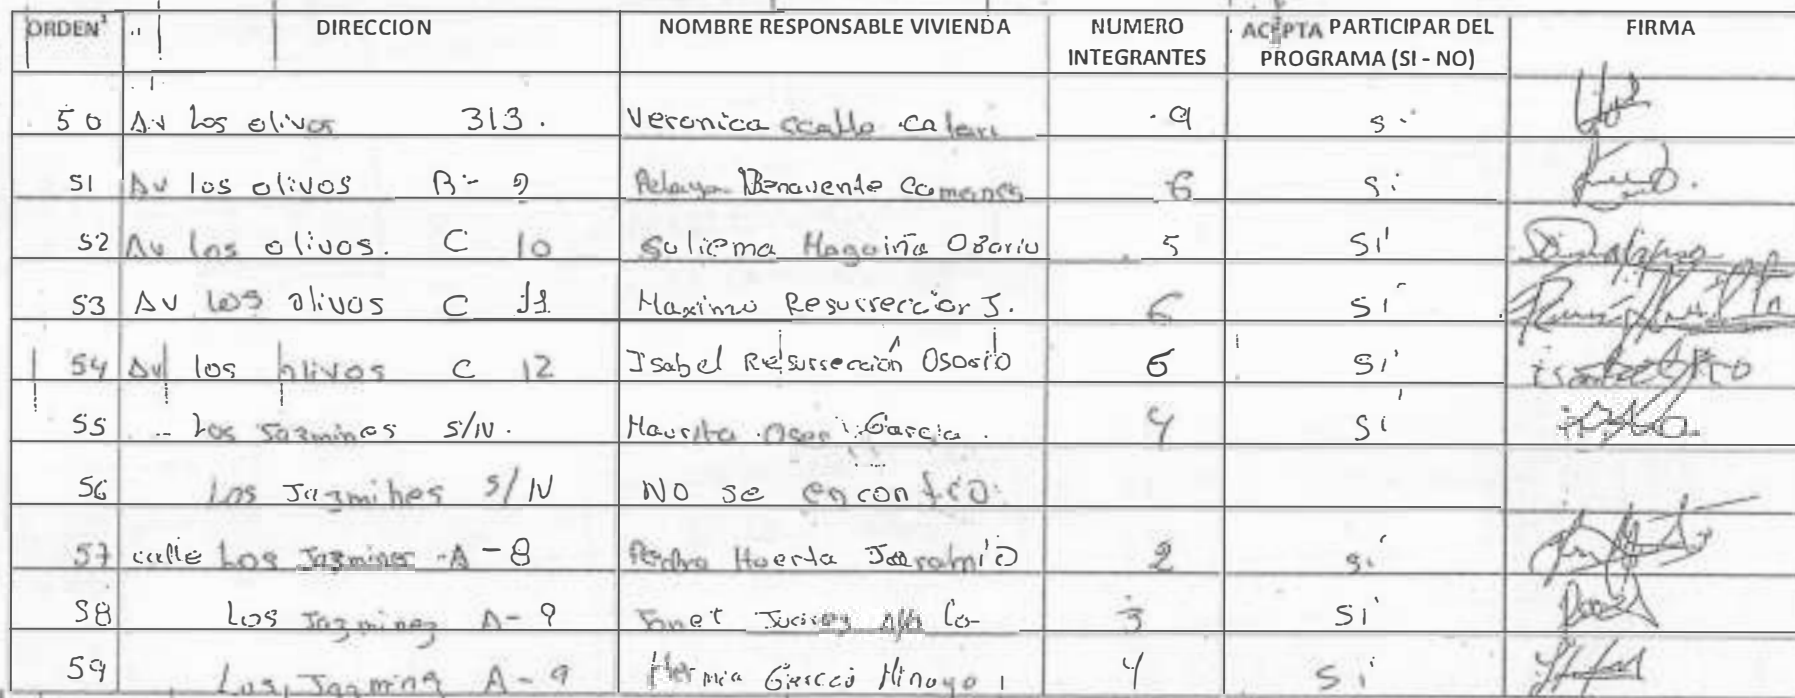 ORDEN DIRECCION NOMBRE RESPONSABLE VIVIENDA NUMERO INTEGRANTES ACEPTA PARTICIPAR DEL PROGRAMA (SI - NO) FIRMA
50 Av Los olivos 313. Veronica ccallo 9 si
51 Av los olivos B- 9 Pelayo Benavente 6 si
52 Av los olivos. C 10 Suliema Maguiña Osorio 5 Si
53 Av los olivos C 11 Maximo Resurreccior J. 6 Si
54 Av los olivos C 12 Isabel Resurrección Osorio 6 Si
55 Los Jazmines S/N. Maurita Garcia. 4 Si
56 Los Jazmines S/N No se encontró.
57 calle Los Jazmines -A-8 Pedro Huerta 2 si
58 Los Jazmines A-9 Janet 3 Si
59 Los Jazmines A-9 4 Si